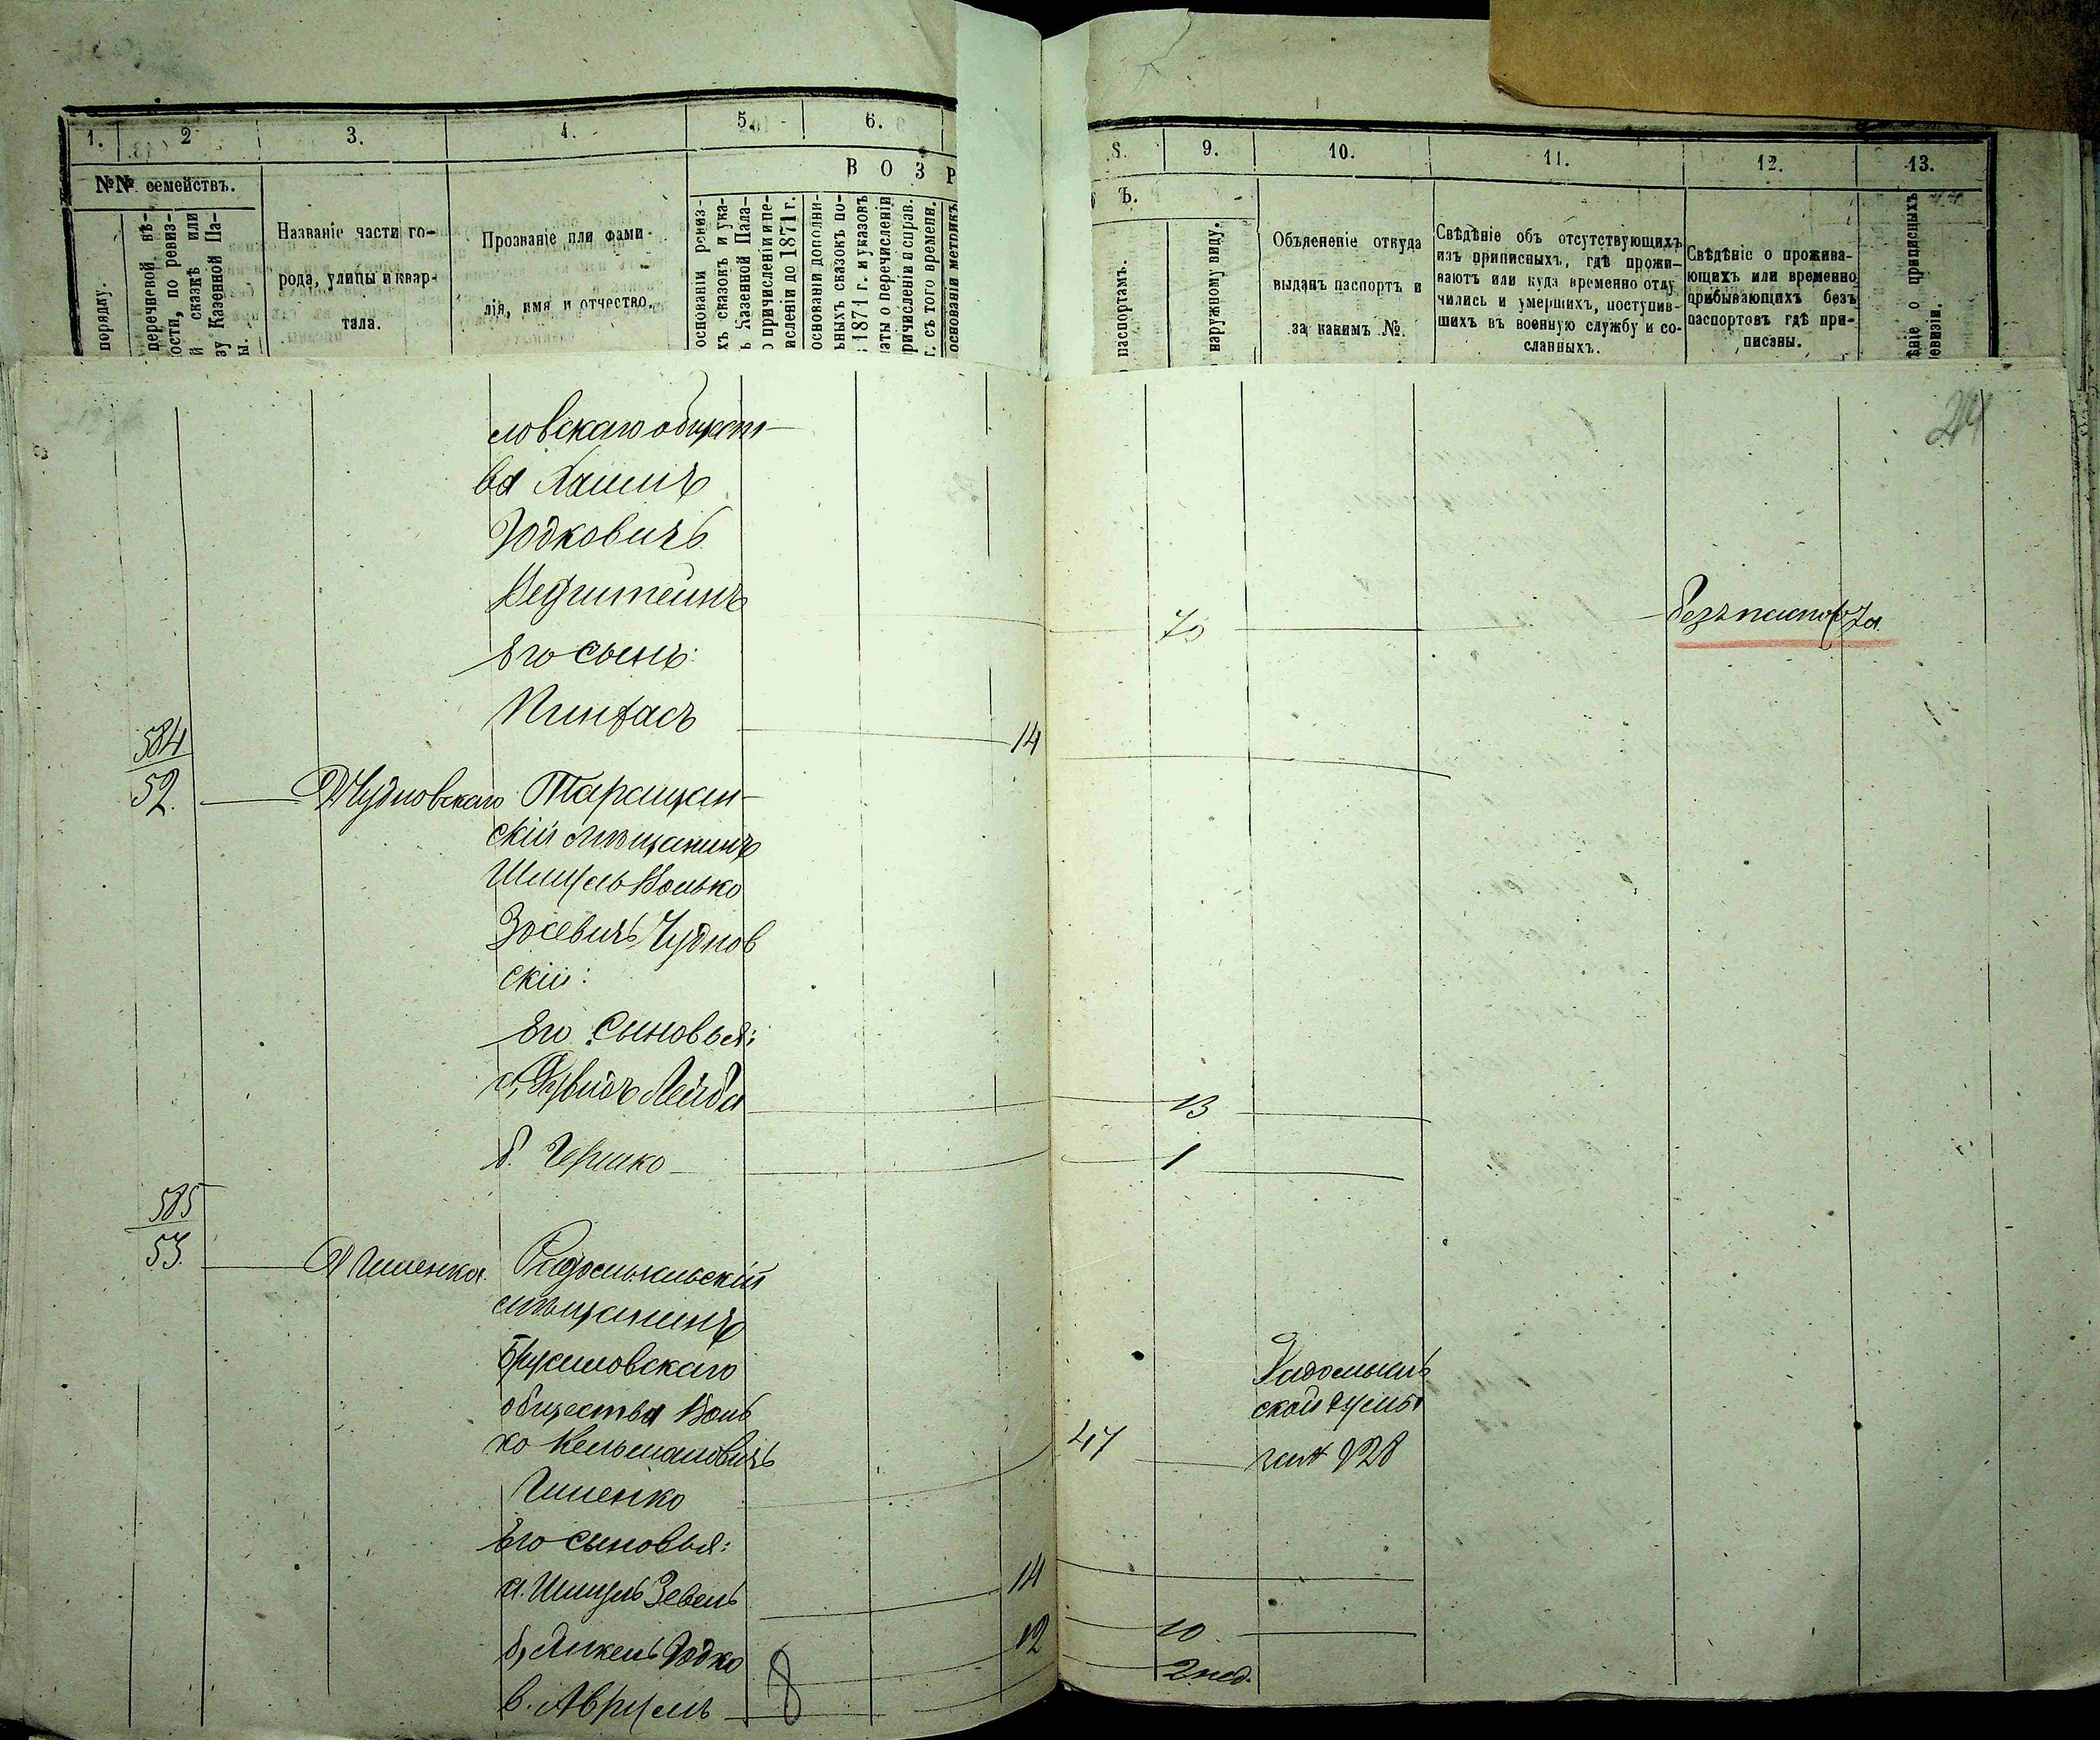 1. 2 3. 4. 5. 6.
В О З Р
№№ семействъ.
порядку.
перечневой вѣ-
ости, по ревиз-
й сказкѣ или
зу Казенной Па-
ы.
Названіе части го-
рода, улицы и квар-
тала.
Прозваніе или фами-
лія, имя и отчество.
основаніи ревиз-
хъ сказокъ и ука-
ъ Казенной Пала-
о причисленіи и пе-
исленіи до 1871 г.
основаніи дополни-
ьныхъ сказокъ по-
1871 г. и указовъ
латы о перечисленіи
ричисленіи и справ.
г. съ того времени.
основаніи метрикъ
8. 9. 10. 11. 12. 13.
Ъ.
паспортамъ.
наружному виду.
Объясненіе откуда
выданъ паспортъ и
за какимъ №.
Свѣдѣніе объ отсутствующихъ
изъ приписныхъ, гдѣ прожи-
ваютъ или куда временно отлу
чились и умершихъ, поступив-
шихъ въ военную службу и со-
сланныхъ.
Свѣдѣніе о прожива-
ющихъ или временно
прибывающихъ безъ
паспортовъ гдѣ при-
писаны.
ѣніе о приписныхъ
евизіи.
24
ловскаго общест-
ва Хаимъ
Іодковичъ
70 безъ паспорта
Его сынъ:
Пинхасъ 14
584
52. Д Чудновскаго Таращан-
скій мѣщанинъ
Шмуль Волько
Зосевичъ Чуднов
скій:
Его сыновья:
а, Дувидъ Лейба 13
б. Гершко 1
585
53. Д Гименка. Радомысльскій
мѣщанинъ
Брусиловскаго
общества Воль
ко Кельмановичъ
Гименко 47 Радомысль
ской думы
за № 928
Его сыновья:
а. Шмуль Зевель 14
б, Янкель Іодко 12 10
в. Аврумъ 8 2 нед.